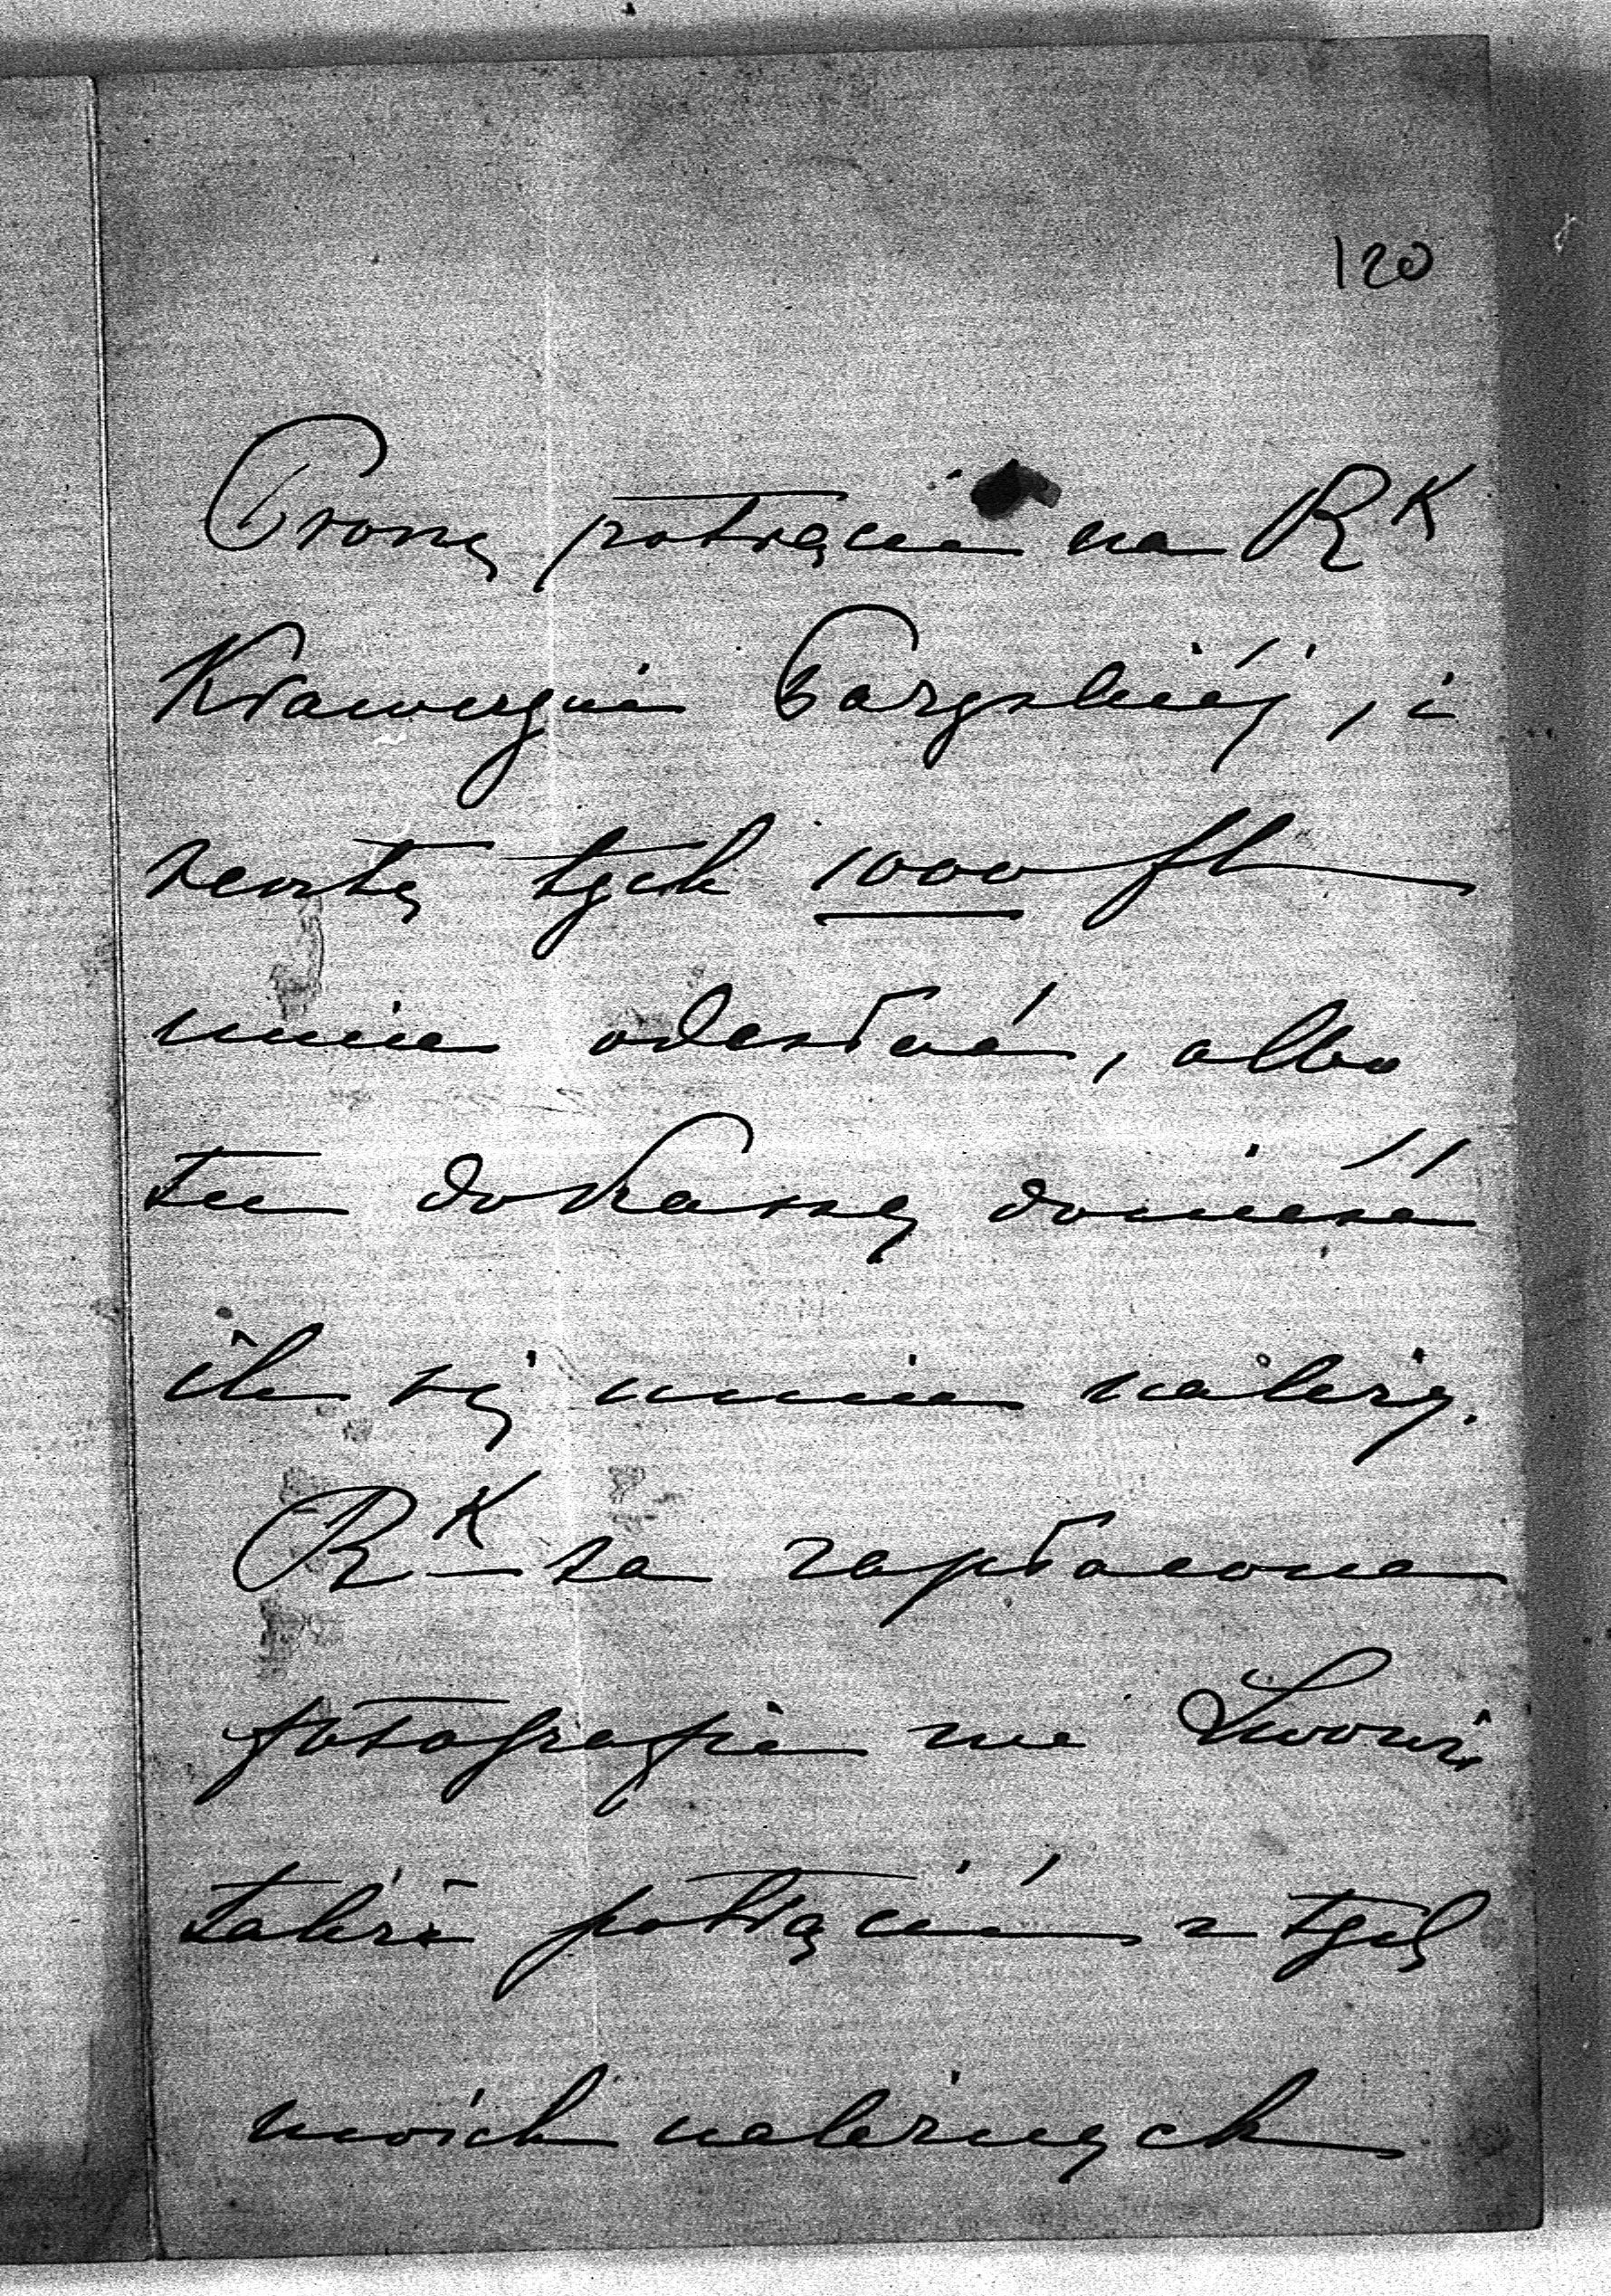 120
Proszę potrącić na R^K
Krawczyni Paryskiéj, i
resztę tych 1000 fl
mnie odesłać, albo
tu dokaszę donieść
ile się mnie należy.
R^K za zapłacone
fotografie we Lwowie
także potrącić z tych
moich należnych